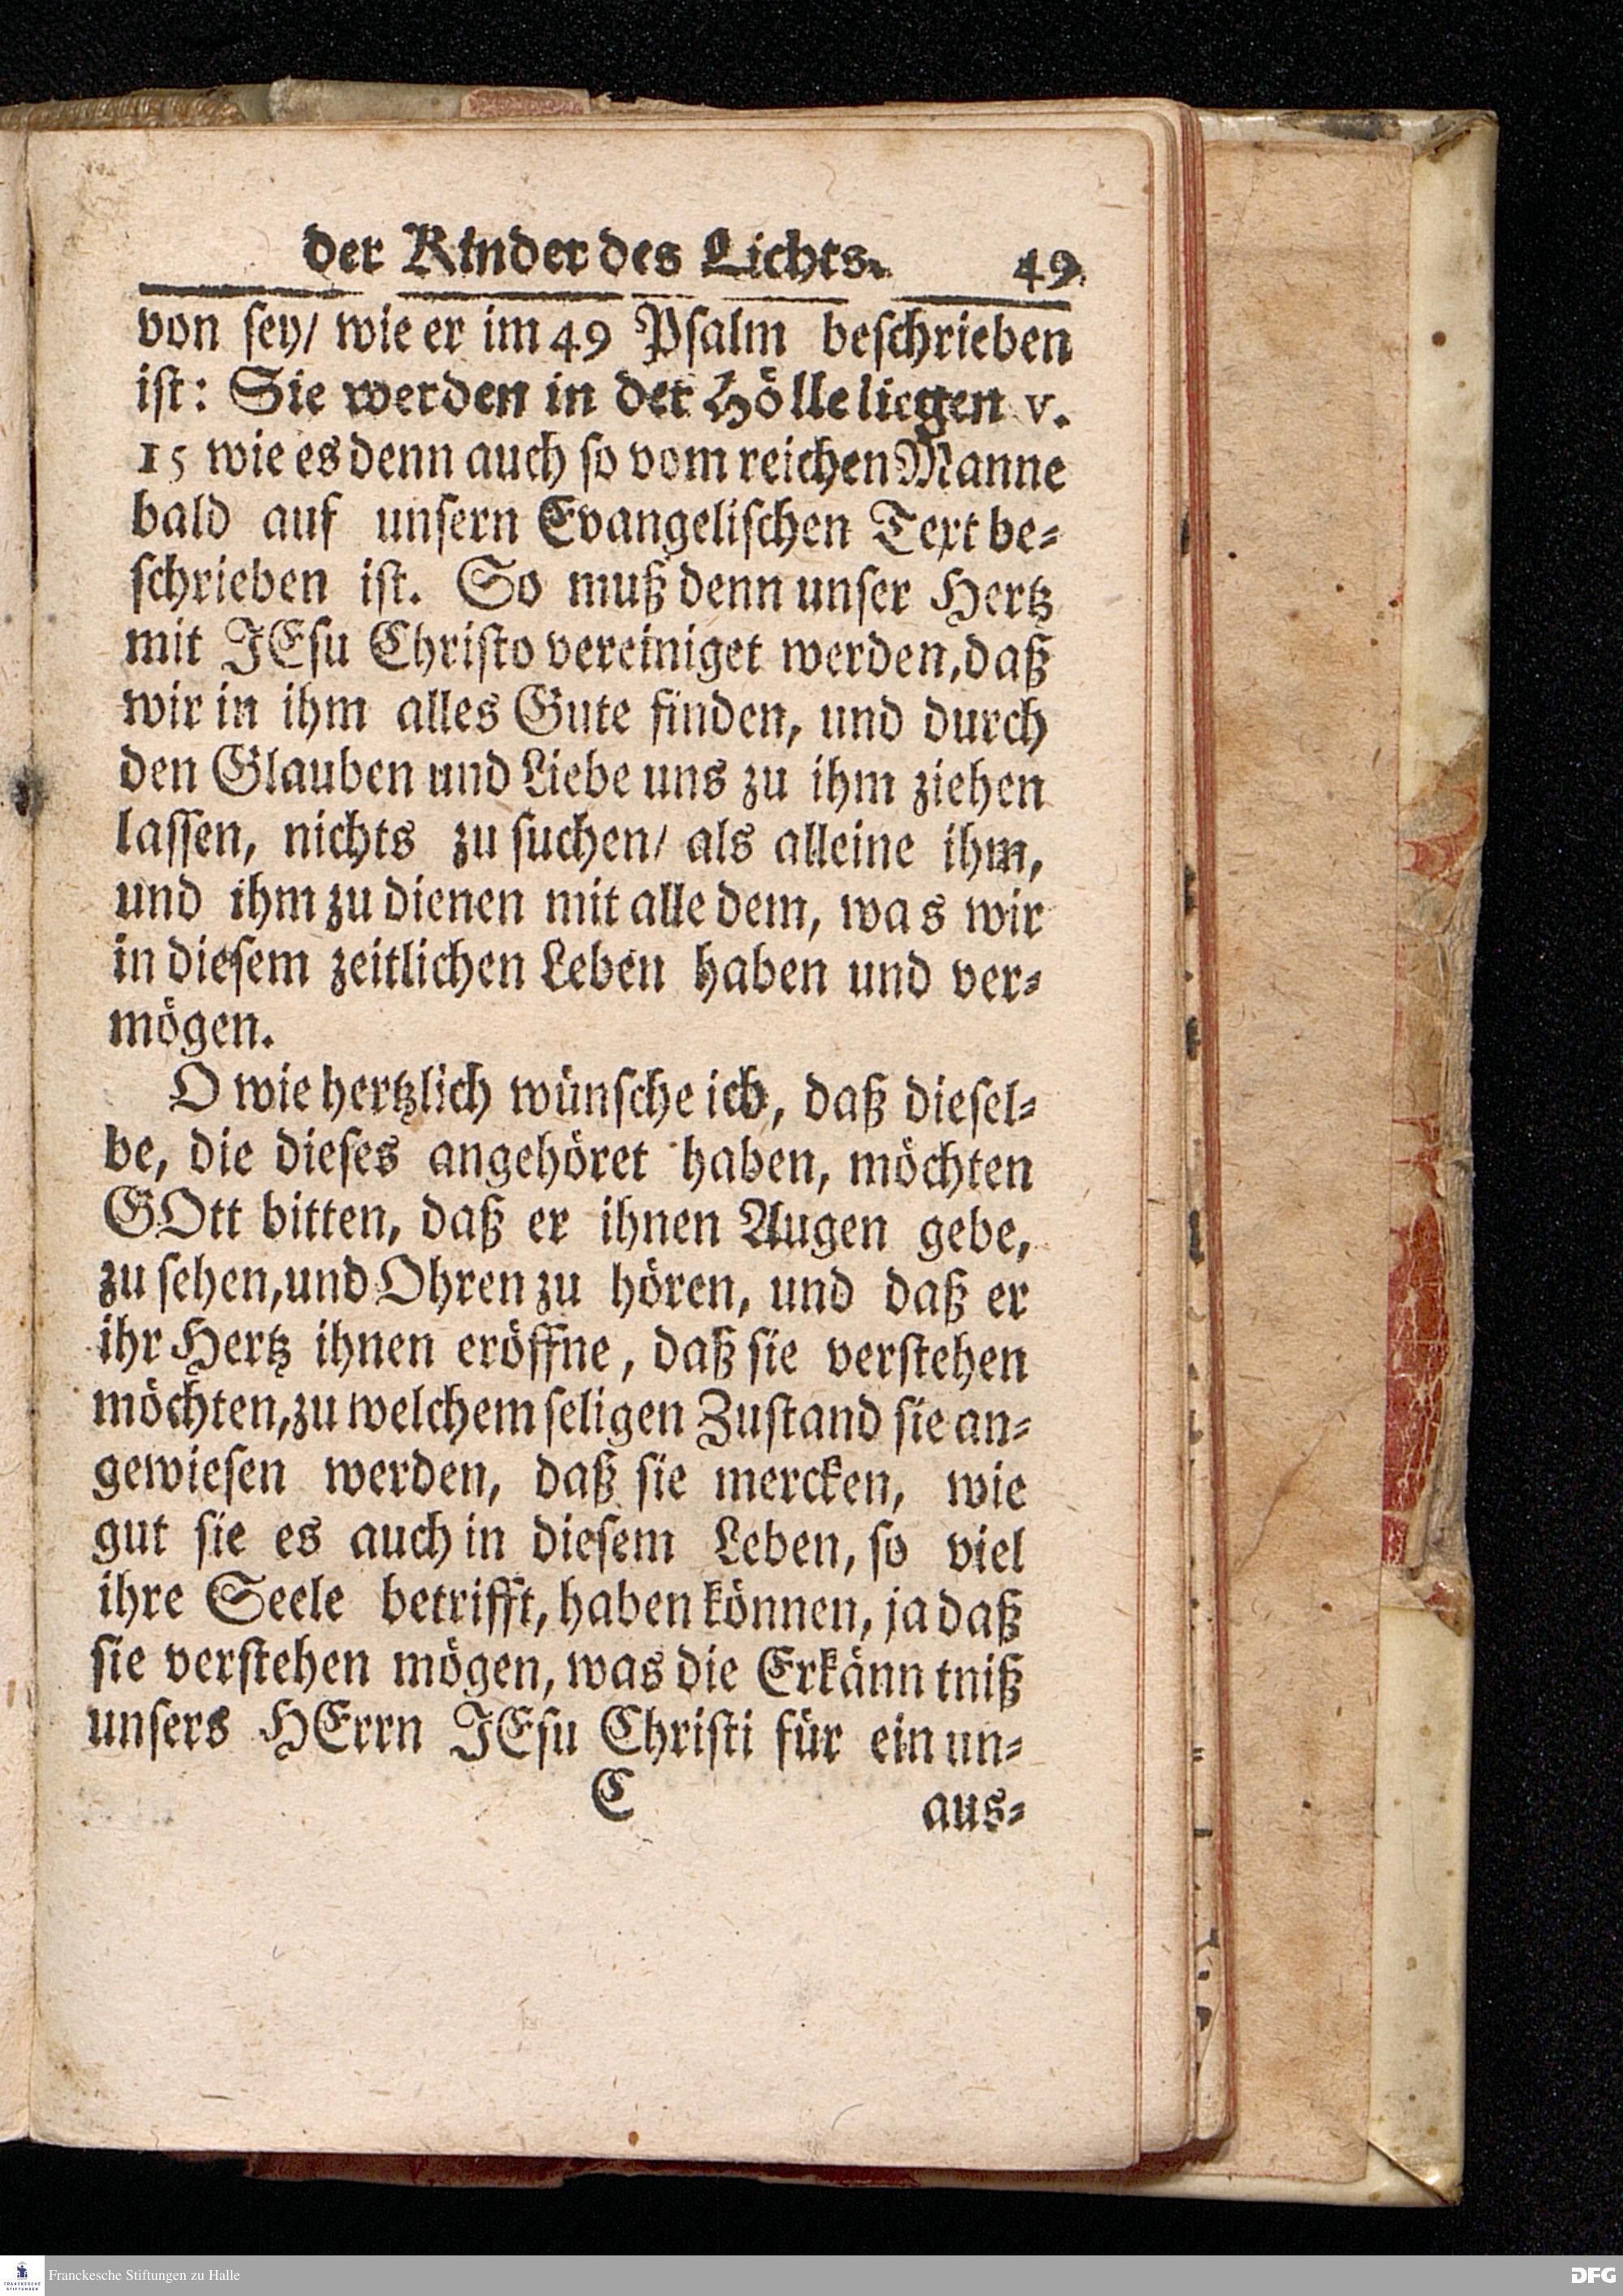 der Kinder des Lichts. 49.
von ſey/ wie er im 49 Pſalm beſchrieben
iſt: Sie werden in der Hölle liegen v.
15 wie es denn auch ſo vom reichen Manne
bald auf unſern Evangeliſchen Text be⸗
ſchrieben iſt. So muß denn unſer Hertz
mit JEſu Chriſto vereiniget werden, daß
wir in ihm alles Gute finden, und durch
den Glauben und Liebe uns zu ihm ziehen
laſſen, nichts zu ſuchen/ als alleine ihm,
und ihm zu dienen mit alle dem, was wir
in dieſem zeitlichen Leben haben und ver⸗
mögen.
O wie hertzlich wünſche ich, daß dieſel⸗
be, die dieſes angehöret haben, möchten
GOtt bitten, daß er ihnen Augen gebe,
zu ſehen, und Ohren zu hören, und daß er
ihr Hertz ihnen eröffne, daß ſie verſtehen
möchten, zu welchem ſeligen Zuſtand ſie an⸗
gewieſen werden, daß ſie mercken, wie
gut ſie es auch in dieſem Leben, ſo viel
ihre Seele betrifft, haben können, ja daß
ſie verſtehen mögen, was die Erkänntniß
unſers HErrn JEſu Chriſti für ein un⸗
C aus⸗
FRANCKESCHE STIFTUNGEN Franckesche Stiftungen zu Halle DFG